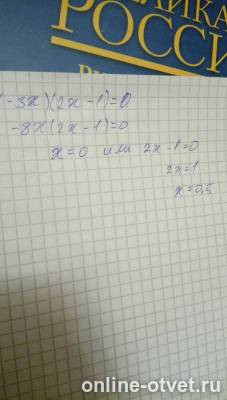 ЛИКА
РОССИ
-3x)(2x-1)=0
-3x(2x-1)=0
x=0 или 2x-1=0
2x=1
x=0,5
online-otvet.ru